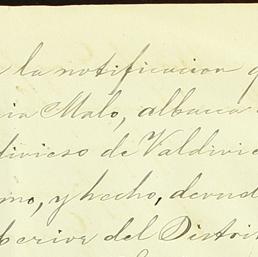 la notificacion
Malo, albacea
divieso de Valdivie
mo, y hecho, devuel
perior del Distri